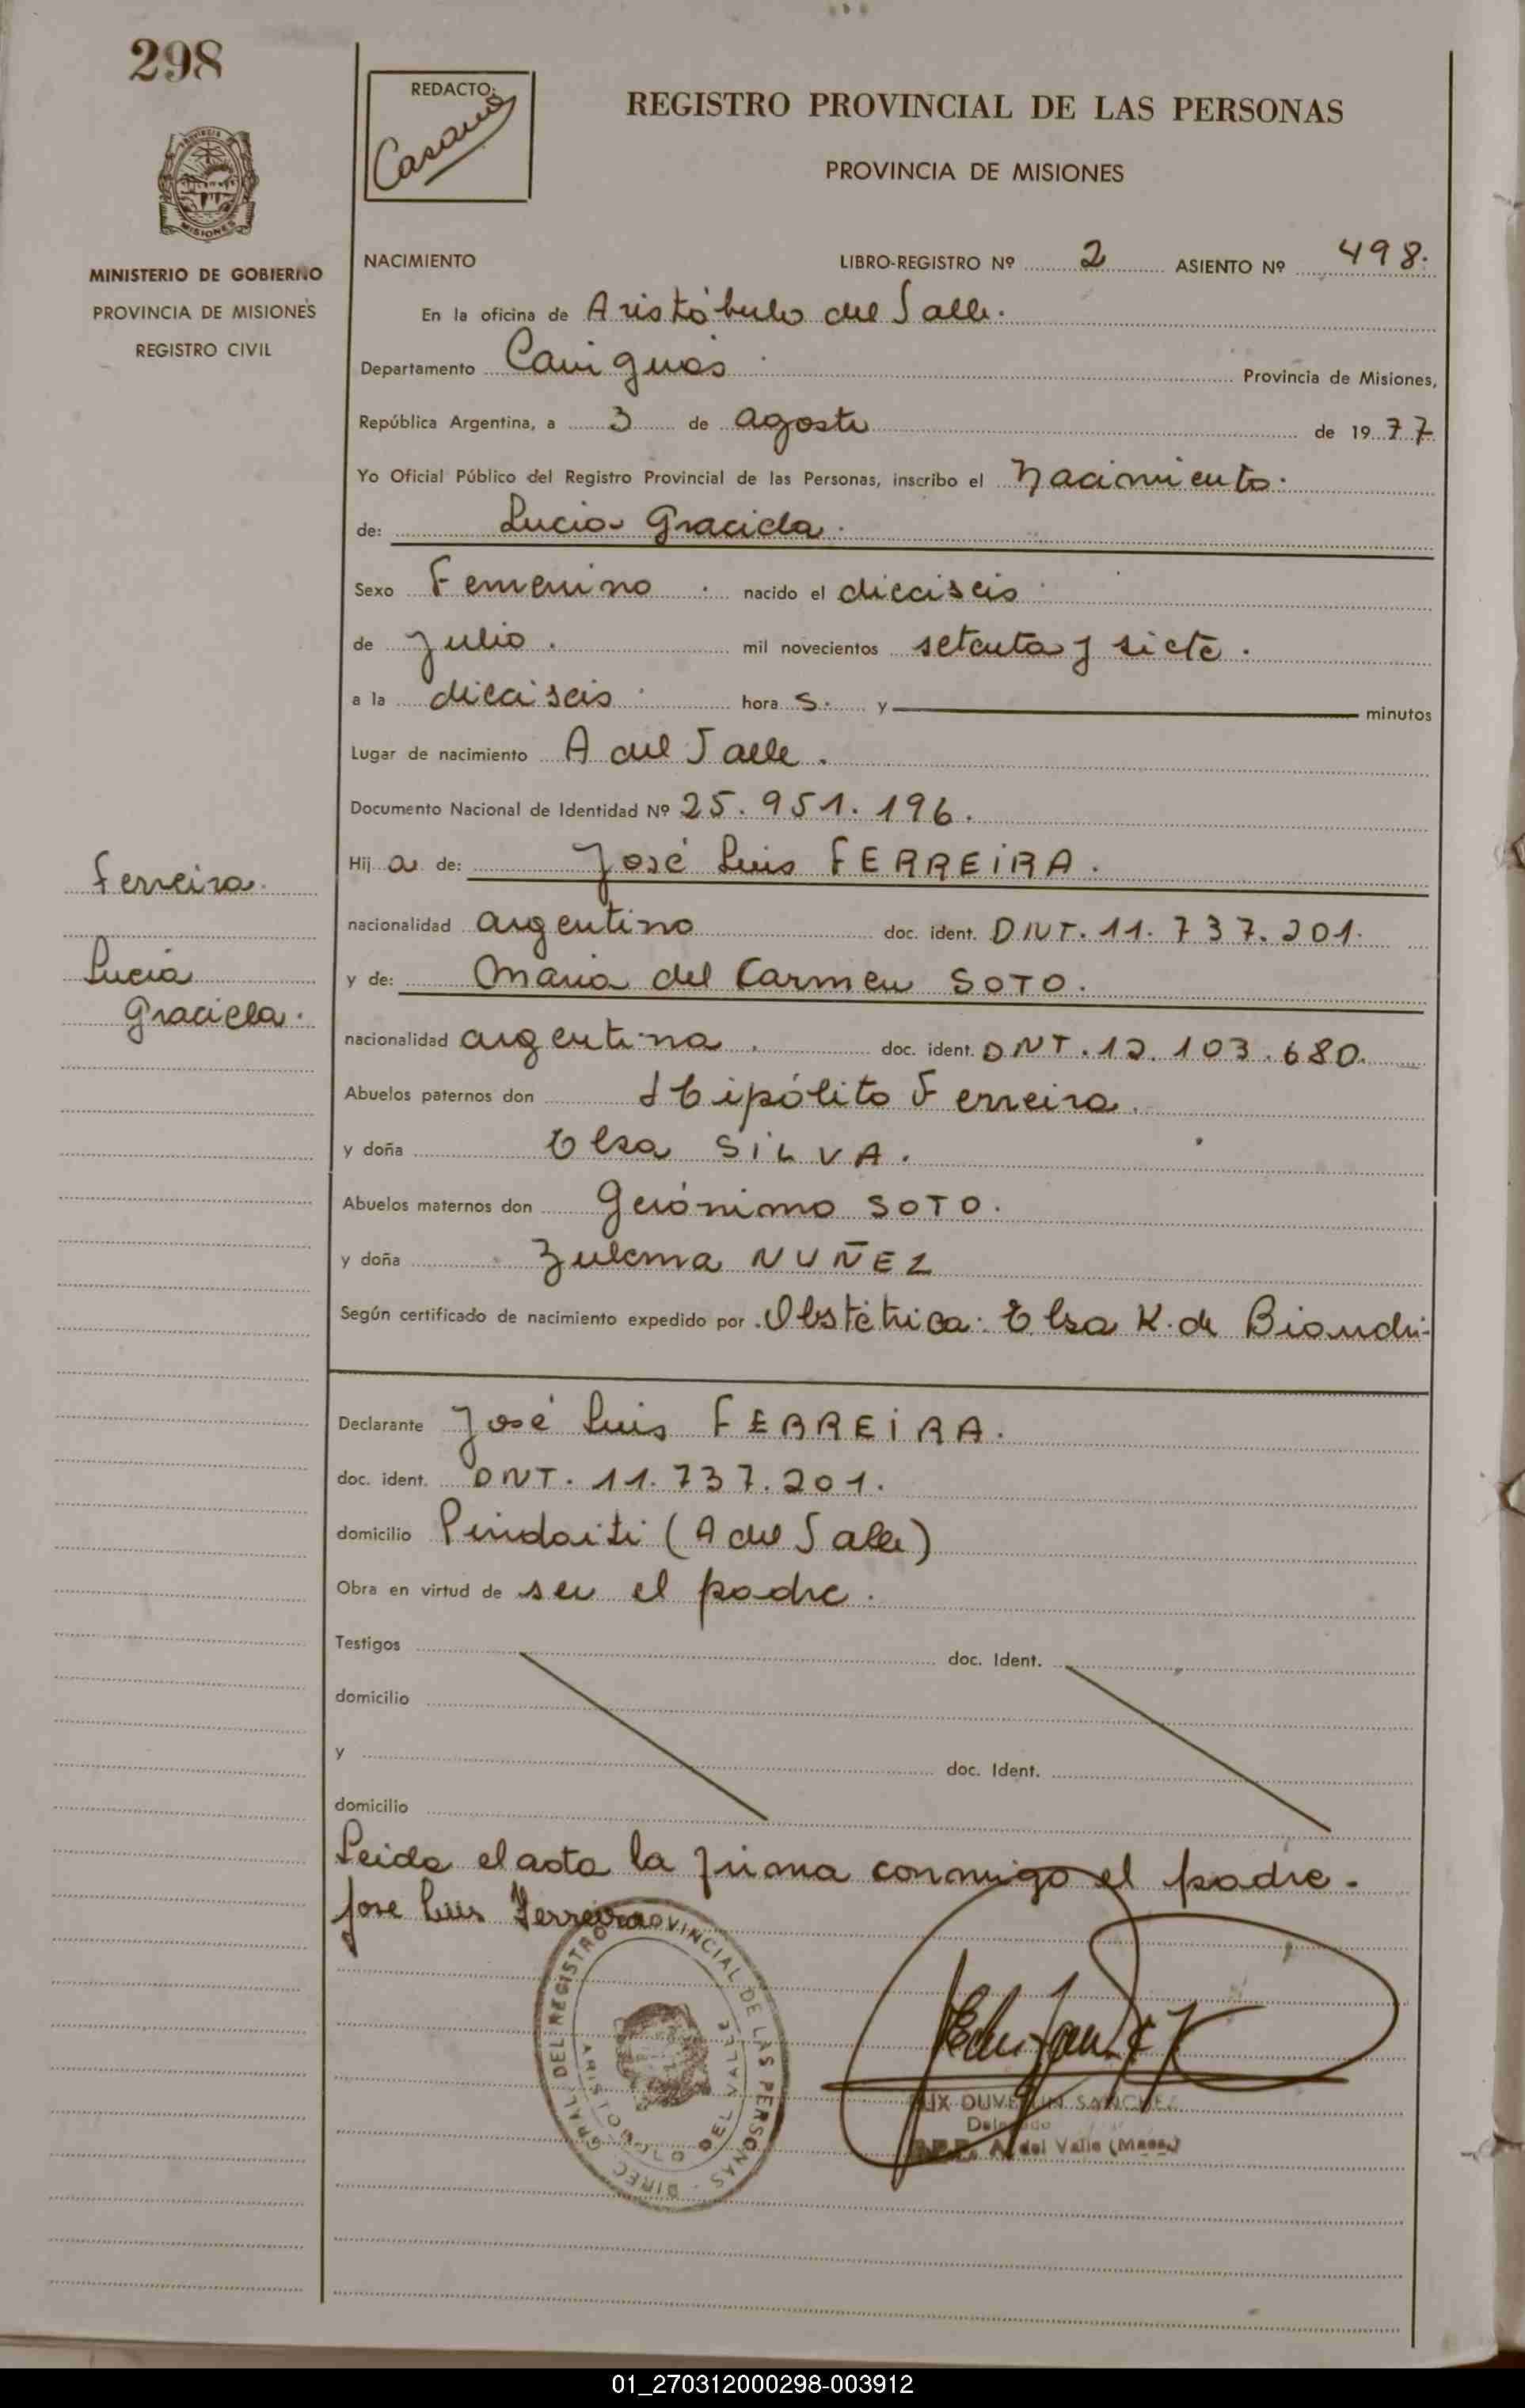 298
REDACTO:
Casano
REGISTRO PROVINCIAL DE LAS PERSONAS
PROVINCIA DE MISIONES
PROVINCIA
MISIONES
MINISTERIO DE GOBIERNO
PROVINCIA DE MISIONES
REGISTRO CIVIL
NACIMIENTO LIBRO-REGISTRO Nº 2 ASIENTO Nº 498.
En la oficina de Aristóbulo del Valle.
Departamento Cainguás Provincia de Misiones,
República Argentina, a 3 de agosto de 1977
Yo Oficial Público del Registro Provincial de las Personas, inscribo el Nacimiento.
de: Lucia Graciela.
Sexo Femenino. nacido el dieciseis
de Julio. mil novecientos setenta y siete.
a la dieciseis hora s. y minutos
Lugar de nacimiento A del Valle.
Documento Nacional de Identidad Nº 25.951.196.
Hij a de: José Luis FERREIRA.
nacionalidad argentino doc. ident. DNI. 11.737.201.
y de: Maria del Carmen SOTO.
nacionalidad argentina. doc. ident. DNI. 12.103.680.
Abuelos paternos don Hipólito Ferreira.
y doña Elsa SILVA.
Abuelos maternos don Gerónimo SOTO.
y doña Zulema NUÑEZ
Según certificado de nacimiento expedido por Obstétrica: Elsa K. de Bianchi-
Ferreira
Lucia
Graciela.
Declarante José Luis FERREIRA.
doc. ident. DNI. 11.737.201.
domicilio Pindaiti (A del Valle)
Obra en virtud de ser el padre.
Testigos doc. Ident.
domicilio
y doc. Ident.
domicilio
Leida el acta la firma conmigo el padre.
Jose Luis Ferreira
DIREC. GRAL. DEL REGISTRO PROVINCIAL DE LAS PERSONAS
ARISTOBULO DEL VALLE
SANCHEZ
Delegado
R.P.P. A. del Valle (Mnes.)
01_270312000298-003912